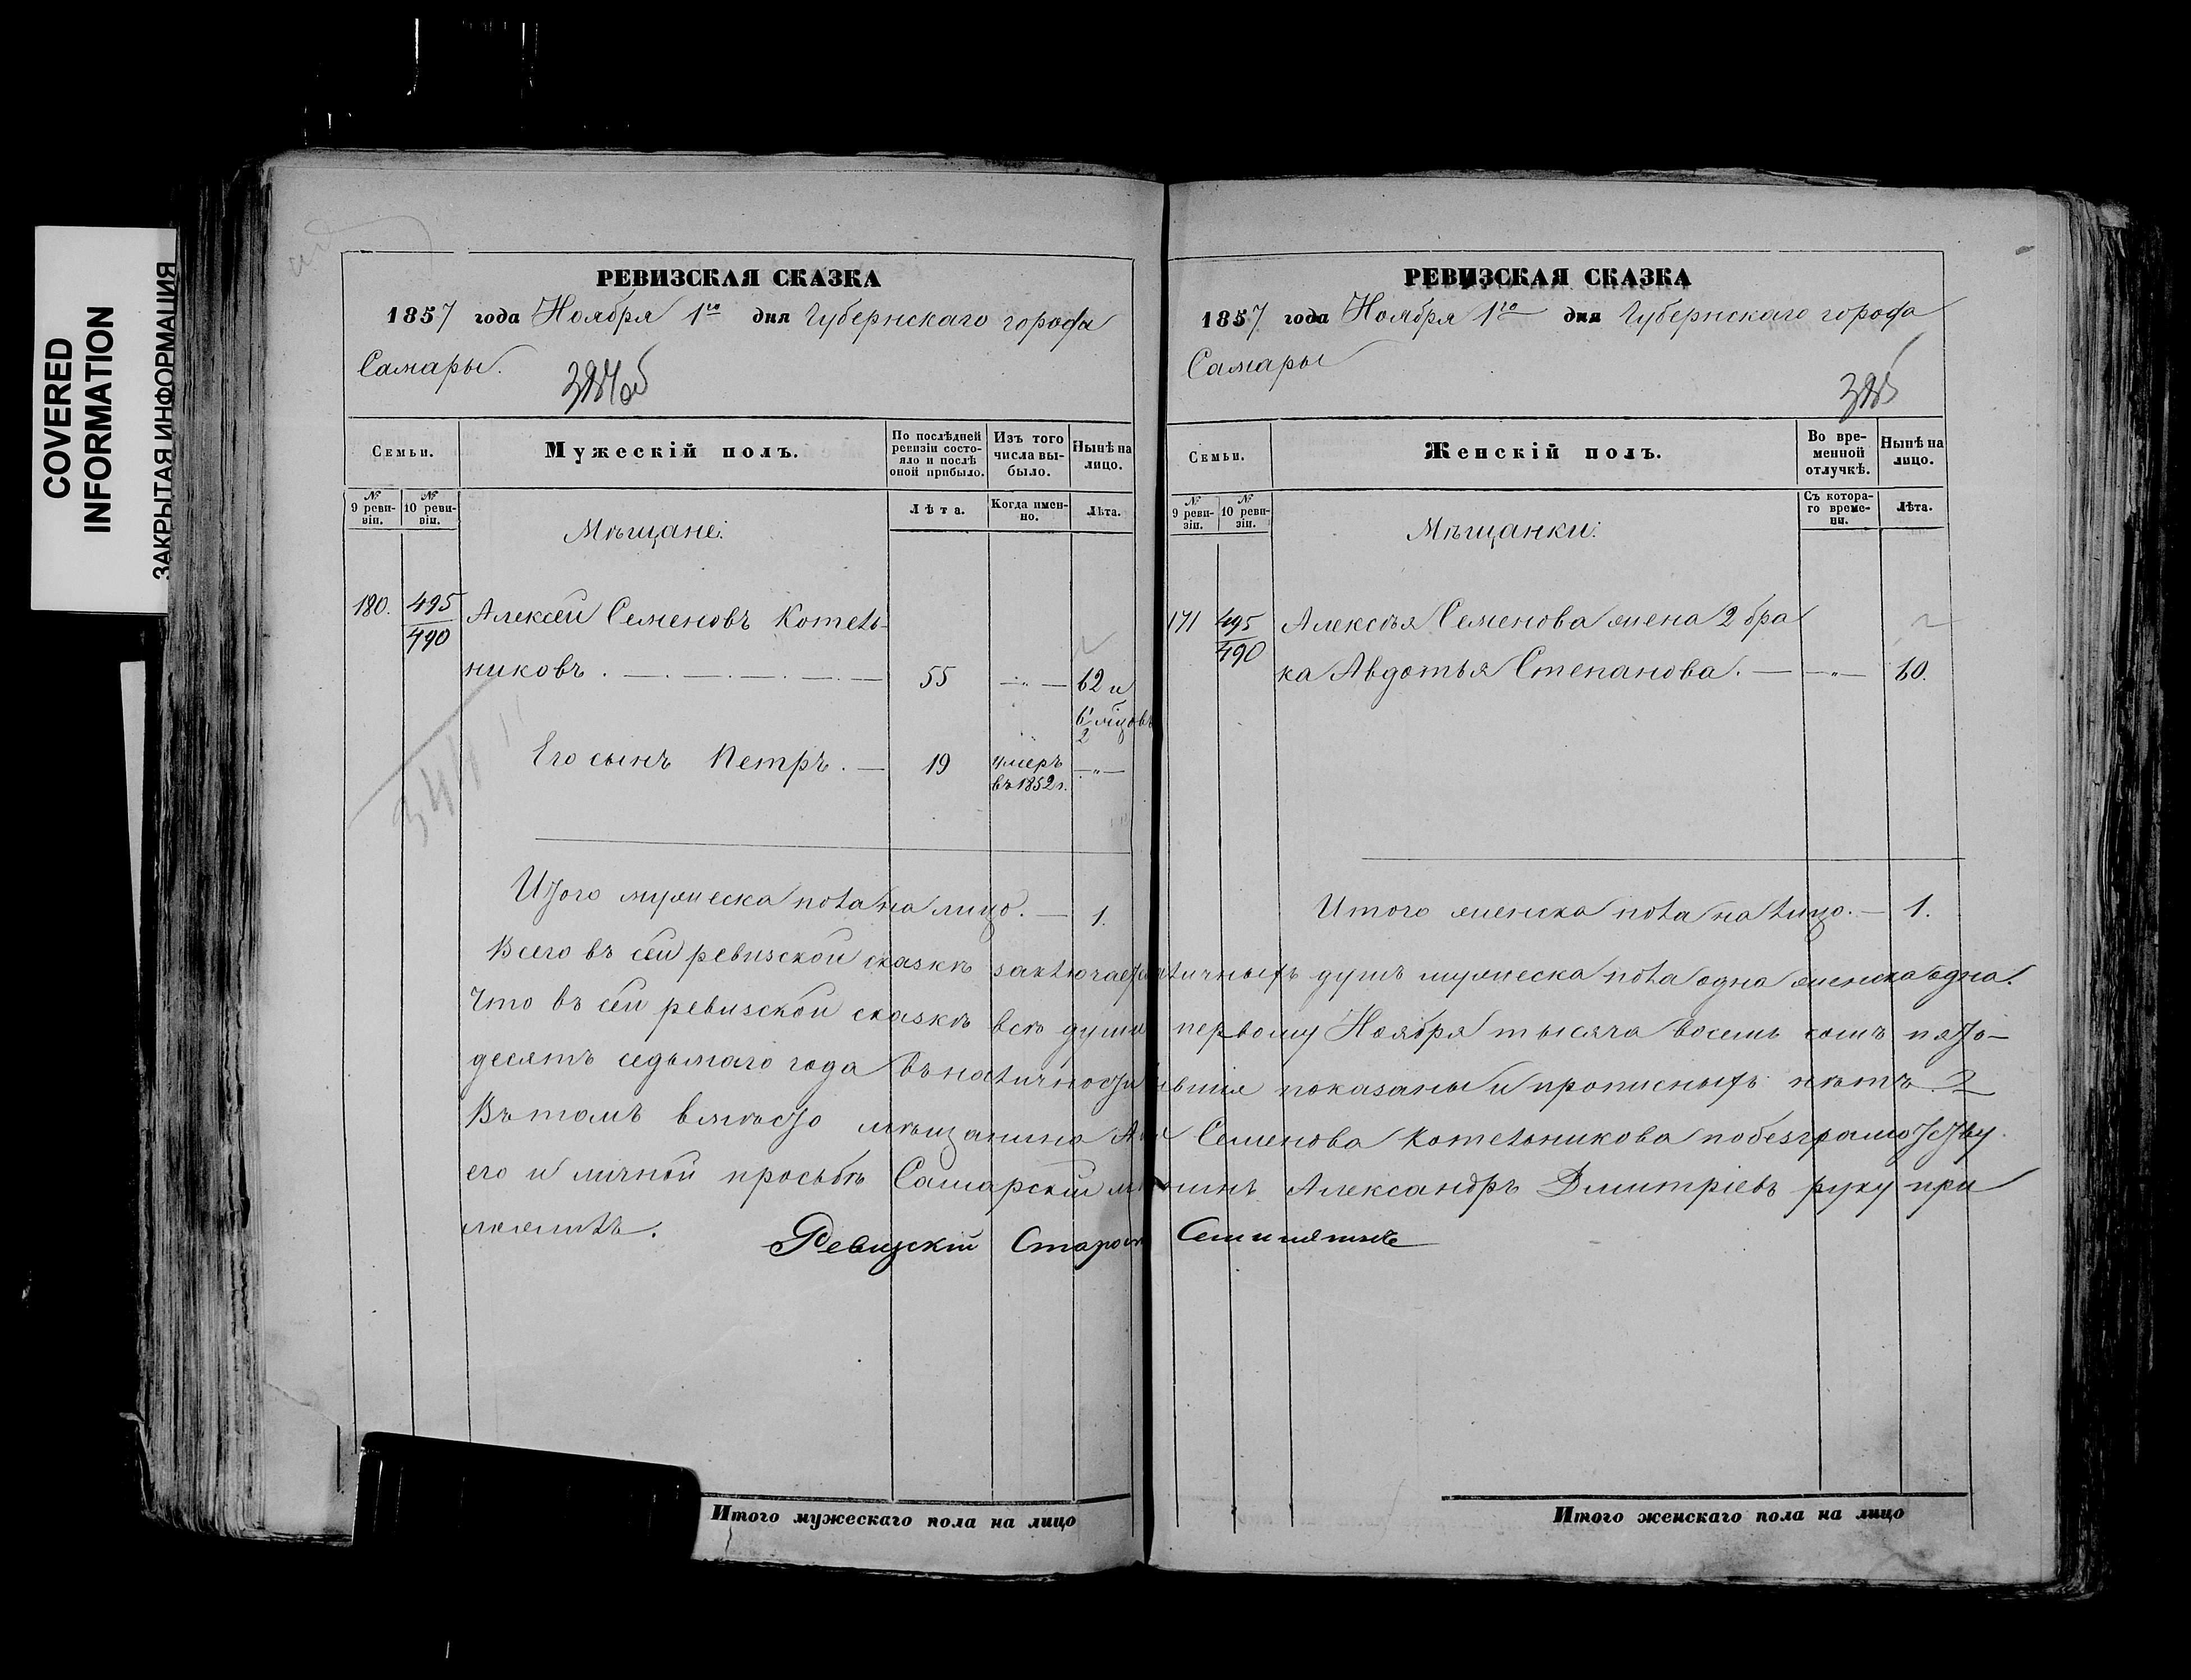 COVERED
INFORMATION
ЗАКРЫТАЯ ИНФОРМАЦИЯ
РЕВИЗСКАЯ СКАЗКА
1857 года Ноября 1го дня Губернскаго города
Самары.
Семьи.
Мужескій полъ.
По послѣдней ревизіи состояло и послѣ оной прибыло.
Изъ того числа выбыло.
Нынѣ на лицо.
№ 9 ревизіи.
№ 10 ревизіи.
Лѣта.
Когда именно.
Лѣта.
Мѣщане:
180. 495/490 Алексѣй Семеновъ Котель-
никовъ. — 55 — " — 62 и
6 мцовъ
2
Его сынъ Петръ. — 19 умеръ въ 1852 г. — " —
Итого мужеска пола на лицо. — 1.
РЕВИЗСКАЯ СКАЗКА
1857 года Ноября 1го дня Губернскаго города
Самары
Семьи.
Женскій полъ.
Во временной отлучкѣ.
Нынѣ на лицо.
№ 9 ревизіи.
№ 10 ревизіи.
Съ котораго времени.
Лѣта.
Мѣщанки:
171 495/490 Алексѣя Семенова жена 2 бра
ка Авдотья Степанова. — — " — 60.
Итого женска пола на лицо. — 1.
Всего въ сей ревизской сказкѣ наличныхъ душъ мужеска пола одна женска одна.
Что въ сей ревизской сказкѣ всѣ души первому Ноября тысяча восемь сотъ пять-
десятъ седьмаго года въ наличности показаны и прописныхъ нѣтъ.
Въ томъ вмѣсто мѣщанина Семенова Котельникова по безграмотству
его и личной просьбѣ Самарскій Александръ Дмитріевъ руку при
ложилъ.
Ревизскій Старост
Итого мужескаго пола на лицо
Итого женскаго пола на лицо